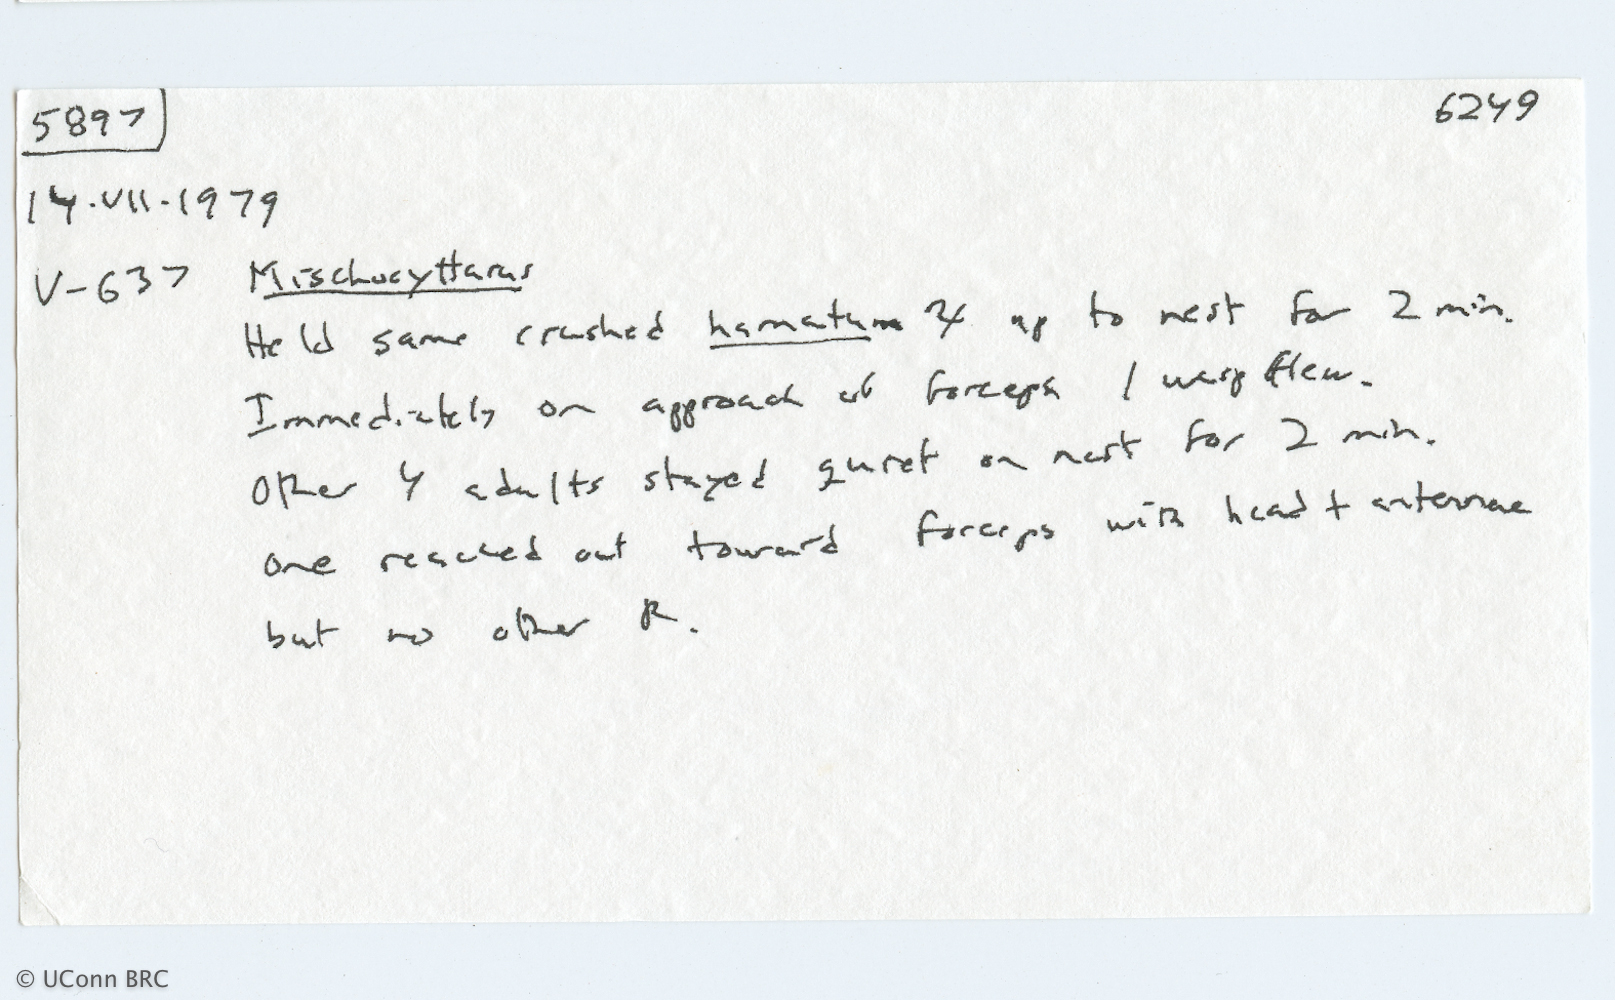 5897
6249
14.VII.1979
V-637 Mischocyttarus
Held same crushed hamatum ☿ up to nest for 2 min.
Immediately on approach of forceps 1 wasp flew.
Other 4 adults stayed quiet on nest for 2 min.
One reached out toward forceps with head + antennae
but no other R.
© UConn BRC